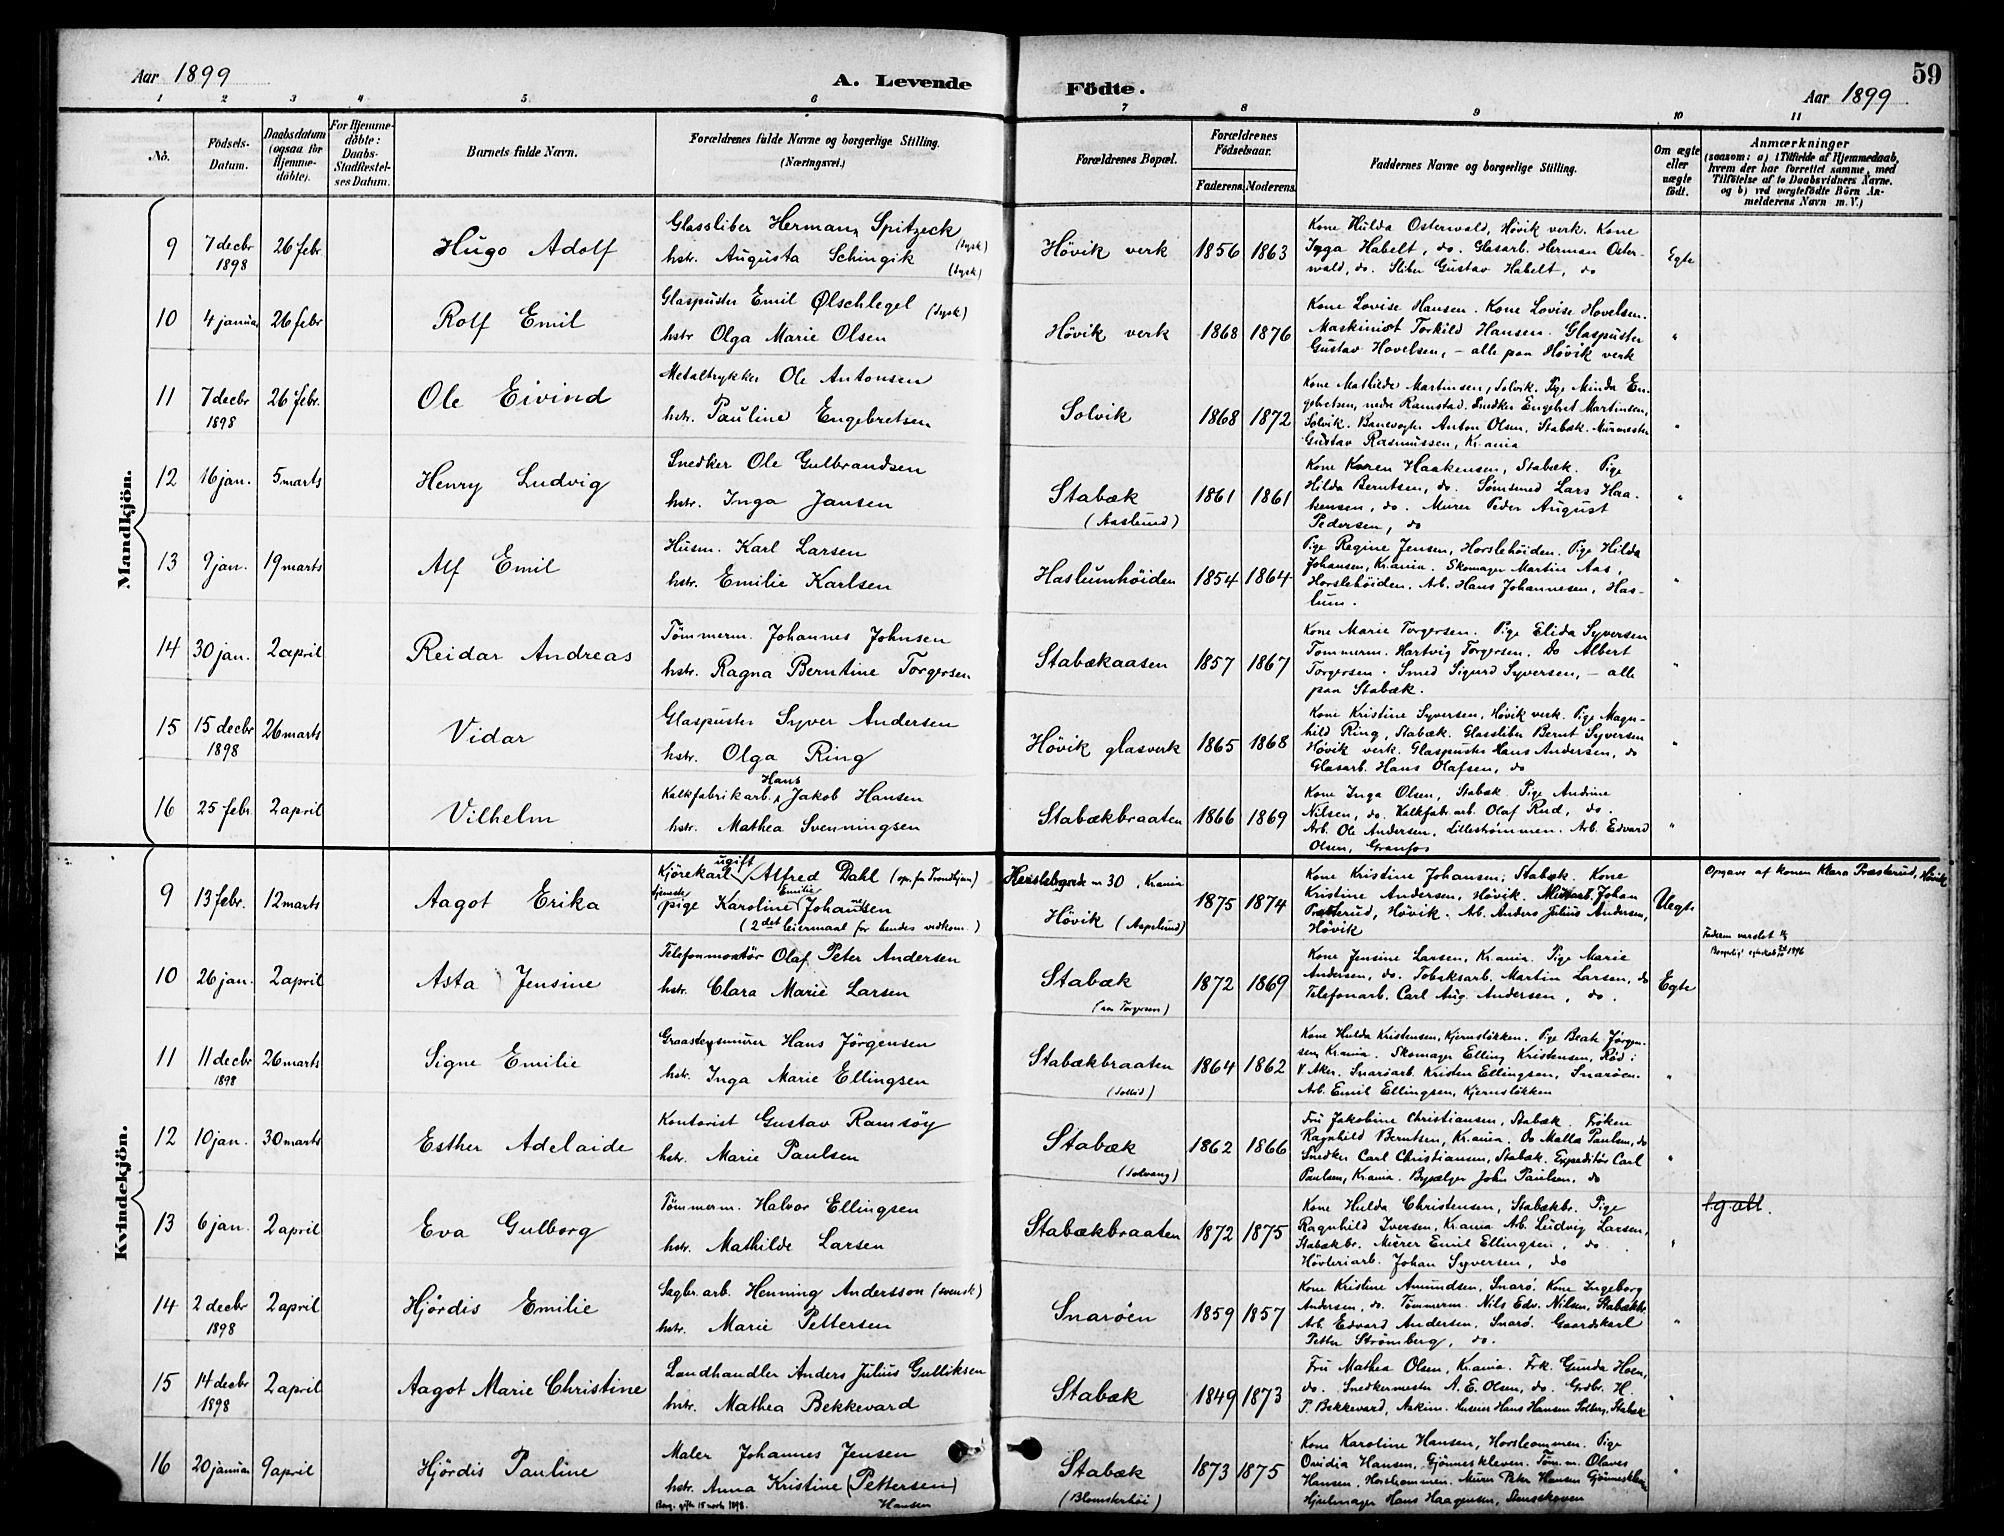 Aar 1899
A. Levende
Födte.
59
Aar 1899
1 2 3 4 5. 6 7 8 9 10 11
No.
Födsels-
Datum.
Daabsdatum
(ogsaa for
Hjemme-
döbte).
For Hjemme-
döbte:
Daabs-
Stadfestel-
ses Datum.
Barnets fulde Navn.
Forældrenes fulde Navne og borgerlige Stilling.
(Næringsvei.)
Forældrenes Bopæl.
Forældrenes
Födselsaar.
Faderens. Moderens.
Faddernes Navne og borgerlige Stilling.
Om ægte
eller
uægte
født.
Anmærkninger
(saasom: a) i Tilfælde af Hjemmedaab,
hvem der har forrettet samme, med
Tilföielse af to Daabsvidners Navne,
og b) ved uægtefödte Börn An-
melderens Navn m. V.)
Mandkjön.
9
7 decbr
1898
26 febr.
Hugo Adolf
Glassliber Herman Spitzeck (tysk)
hstr. Augusta Schingik (tysk)
Høvik verk
1856 1863
Kone Hulda Osterwald, Høvik verk. Kone
Habelt, do. Glasarb. Herman Oster-
wald, do. Sliber Gustav Habelt, do
Egte
10
4 januar
26 febr
Rolf Emil
Glaspuster Emil Ølschlegel (tysk)
hstr Olga Marie Olsen
Høvik verk
1868 1876
Kone Lovise Hansen. Kone Lovise Hovelsen.
Maskinist Torkild Hansen. Glaspuster
Gustav Hovelsen, – alle paa Høvik verk
"
11
7 decbr
1898
26 febr.
Ole Eivind
Metaltrykker Ole Antonsen
hstr. Pauline Engebretsen
Solvik
1868 1872
Kone Mathilde Martinsen, Solvik. Pige Minda En-
gebretsen, nedre Ramstad. Snedker Engebret Martinsen,
Solvik. Banevogter Anton Olsen, Stabæk. Murmester
Gustav Rasmussen, Kr.ania
"
12
16 jan.
5 marts
Henry Ludvig
Snedker Ole Gulbrandsen
hstr. Inga Jansen
Stabæk
(Aaslund)
1861 1861
Kone Karen Haakensen, Stabæk. Pige
Hilda Berntsen, do. Sømsmed Lars Haa-
kensen, do. Murer Peder August
Pedersen, do
"
13
9 jan.
19 marts
Alf Emil
Husm. Karl Larsen
hstr. Emilie Karlsen
Haslumhöiden
1854 1864
Pige Regine Jensen, Horslehöiden. Pige Hilda
Johansen, Kr.ania. Skomager Martin Aas,
Horslehöiden. Arb. Hans Johannesen, Has-
lum.
"
14
30 jan.
2 april
Reidar Andreas
Tömmerm. Johannes Johnsen
hstr. Ragna Berntine Torgersen
Stabækaasen
1857 1867
Kone Marie Torgersen. Pige Elida Syversen
Tommerm. Hartvig Torgersen. Do Albert
Torgersen. Smed Sigurd Syversen, – alle
paa Stabæk.
"
15
15 decbr
1898
26 marts
Vidar
Glaspuster Syver Andersen
hstr. Olga Ring
Høvik glasverk
1865 1868
Kone Kristine Syversen, Høvik verk. Pige Magn-
hild Ring, Stabæk. Glassliber Bernt Syversen
Høvik verk. Glaspuster Hans Andersen, do
Glasarb. Hans Olafsen, do
"
16
25 febr.
2 april
Vilhelm
Hans
Kalkfabrikarb. Jakob Hansen
hstr. Mathea Svenningsen
Stabækbraaten
1866 1869
Kone Inga Olsen, Stabæk. Pige Andine
Nilsen, do. Kalkfabr.arb. Olaf Rud, do.
Arb. Ole Andersen, Lillestrømmen. Arb. Edvard
Olsen, Granfos
"
Kvindekjön.
9
13 febr.
12 marts
Aagot Erika
ugift
Kjörekarl Alfred Dahl (opr. fra Trondhjem)
tjeneste Emilie
pige Karoline Johansen
(2det leiermaal for hendes vedkom.)
nr 30, Krania
Høvik (Aspelund)
1875 1874
Kone Kristine Johansen, Stabæk. Kone
Kristine Andersen, Høvik. Johan
Præsterud, Høvik. Arb. Anders Julius Andersen,
Høvik
Uegte
Opgave af konen Klara Præsterud, Høvik
Faderen varslet
10
26 jan.
2 april
Asta Jensine
Telefonmontör Olaf Peter Andersen
hstr. Clara Marie Larsen
Stabæk
(hos Torgersen)
1872 1869
Kone Jensine Larsen, Kr.ania. Pige Marie
Andersen, do. Tobaksarb. Martin Larsen, do
Telefonarb. Carl Aug. Andersen, do.
Egte
11
11 decbr
1898
26 marts
Signe Emilie
Graastensmurer Hans Jörgensen
hstr. Inga Marie Ellingsen
Stabækbraaten
1864 1862
Kone Hulda Kristensen, Kjernsløkken. Pige Beate Jörgen-
sen, Kr.ania. Skomager Elling Kristensen, Röd i
V. Aker. Snaröarb. Kristen Ellingsen, Snaröen.
Arb. Emil Ellingsen, Kjernsløkken
"
12
10 jan.
30 marts
Esther Adelaide
Kontorist Gustav Ramsöy
hstr. Marie Paulsen
Stabæk
(Solvang)
1862 1866
Fru Jakobine Christiansen, Stabæk. Fröken
Ragnhild Berntsen, Kr.ania. Do Malla Paulsen, do
Snedker Carl Christiansen, Stabæk. Expeditör Carl
Paulsen, Kr.ania. Bysælger John Paulsen, do
"
13
6 jan.
2 april
Eva Gulborg
Tömmerm. Halvor Ellingsen
hstr. Mathilde Larsen
Stabækbraaten
1872 1875
Kone Hulda Christensen, Stabækbr. Pige
Ragnhild Iversen, Kr.ania Arb. Ludvig Larsen,
Stabækbr. Murer Emil Ellingsen, do
Hövleriarb. Johan Syversen, do
"
14
2 decbr
1898
2 april
Hjördis Emilie
Sagbr.arb. Henning Andersson (svensk)
hstr. Marie Pettersen
Snaröen
1859 1857
Kone Kristine Amundsen, Snarö. Kone Ingeborg
Andersen, do. Tömmerm. Nils Edv. Nilsen, Stabækbr.
Arb. Edvard Andersen, Snarö. Gaardskarl
Petter Strömberg, do.
"
15
14 decbr
1898
2 april
Aagot Marie Christine
Landhandler Anders Julius Gulliksen
hstr. Mathea Bekkevard
Stabæk
1849 1873
Fru Mathea Olsen, Kr.ania. Frk. Gunda Hoen,
do. Snedkermester A. E. Olsen, do. Grdbr. H.
P. Bekkevard, Askim. Hans Hansen Solberg, Stabæk
"
16
20 januar
9 april
Hjördis Pauline
Maler Johannes Jensen
hstr. Anna Kristine (Pettersen)
Hansen
Borg. gifte 15 1898.
Stabæk
(Blomsterhöi)
1873 1875
Kone Karoline Hansen, Horsleommen. Pige
Ovidia Hansen, Gjönneskleven. Töm.m. Olaves
Hansen, Horsleommen. Murer Peter Hansen Gjönneskleven
Hjulmager Hans Haagensen, Stensskoven
"